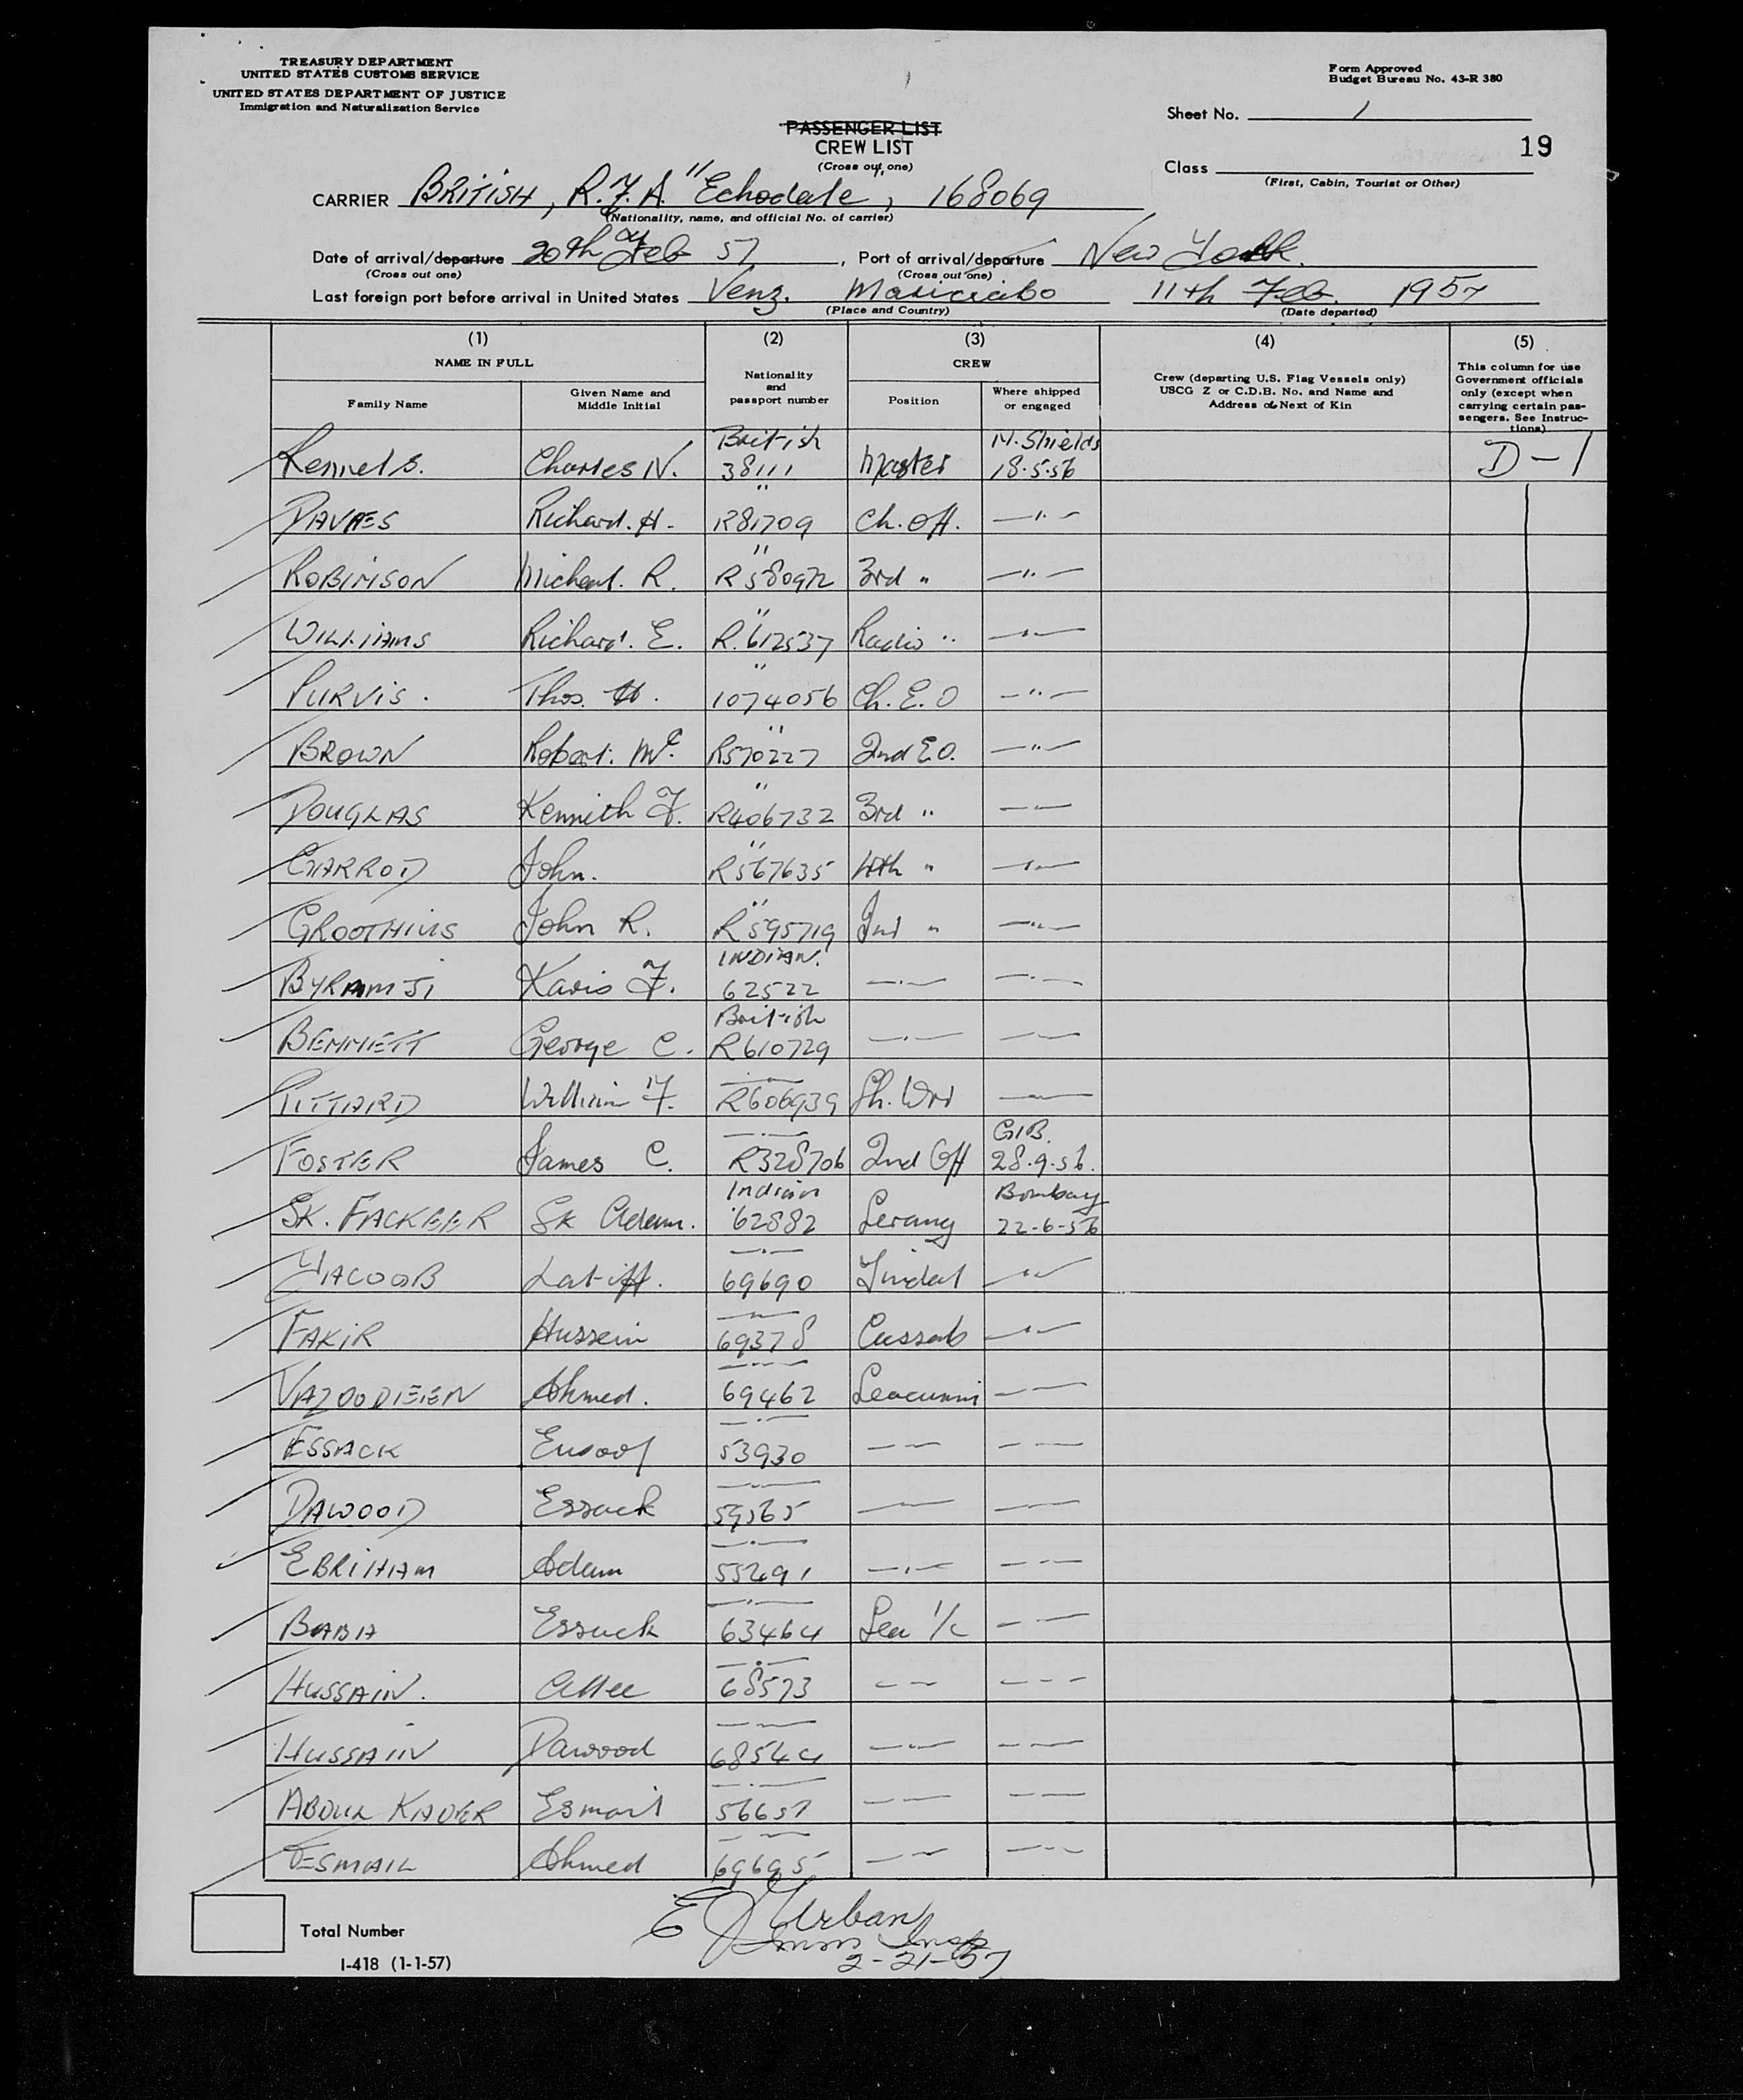 TREASURY DEPARTMENT
UNITED STATES CUSTOMS SERVICE
UNITED STATES DEPARTMENT OF JUSTICE
Immigration and Naturalization Service
Form Approved
Budget Bureau No. 43-R 380
Sheet No. 1
19
PASSENGER LIST
CREW LIST
(Cross out one)
Class
(First, Cabin, Tourist or Other)
CARRIER BRITISH, R.F.A. "Echodale, 168069
(Nationality, name, and official No. of carrier)
Date of arrival/departure 20th Feb 57, Port of arrival/departure New York.
(Cross out one) (Cross out one)
Last foreign port before arrival in United States Venz. 11th Feb. 1957
(Place and Country) (Date departed)
(1) (2) (3) (4) (5)
NAME IN FULL Nationality and passport number CREW Crew (departing U.S. Flag Vessels only) USCG Z or C.D.B. No. and Name and Address of Next of Kin This column for use Government officials only (except when carrying certain passengers. See Instructions)
Family Name Given Name and Middle Initial Position Where shipped or engaged
British N. Shields
Charles N. 38111 Master 18.5.56 D-1
"
Richard. H. R81709 Ch. Off. —"—
"
ROBINSON Micheal. R. R580972 3rd " —"—
"
WILLIAMS Richard. E. R.612537 Radio " —"—
"
PURVIS. Thos. 1074056 Ch. E.O —"—
"
BROWN Robert. Mc. R570227 2nd E.O. —"—
"
DOUGLAS Kennith F. R406732 3rd " — —
"
GARROD John. R567635 4th " —"—
"
John R. R595719 " —"—
INDIAN.
BYRAMJI F. 62522 —"— —"—
British
BENNETT George C. R610729 —"— — —
—"—
William F. R606939 — —
—"— GIB.
FOSTER James C. R328706 2nd Off 28.9.56.
Indian Bombay
SK. FACKEER SK Adam. 62882 Serang 22-6-56
—"—
YACOOB Latiff. 69690 Tindal —"—
—"—
FAKIR Hussein 69378 Cassab —"—
— —
VAZOODIEEN Ahmed. 69462 — —
—"—
ESSACK Eusoof 53930 — — — —
— —
DAWOOD Essack 59565 — — — —
—"—
EBRIHAM Adam 55291 —"— — —
—"—
BABA Essack 63464 Sea 1/c — —
—"—
HUSSAIN. Allee 68573 — — — —
— —
HUSSAIN Dawood 68544 — — — —
—"—
ABDUL KADER Esmail 56657 — — — —
— —
ESMAIL Ahmed 69695 — — — —
Total Number
E J Urban
Imm Insp
2-21-57
I-418 (1-1-57)